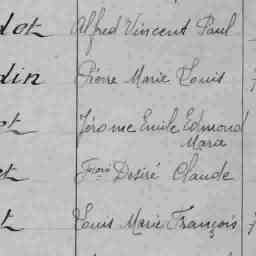 dot Alfred Vincent Paul
din Pierre Marie Louis
ot Jérome Emile Edmond
Marie
et Désiré Claude
t Louis Marie François